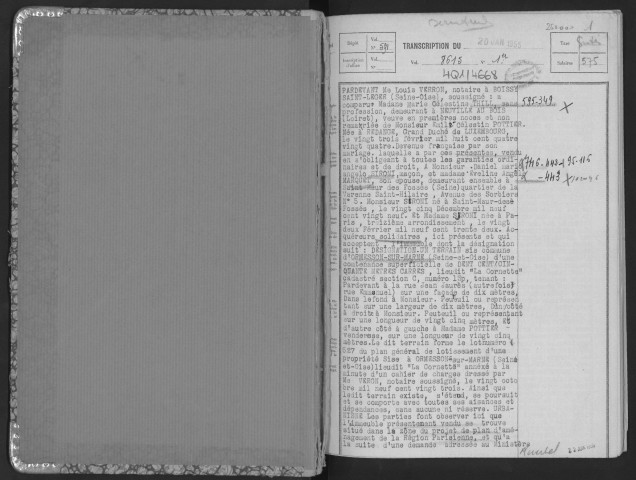 Dépôt
Vol.
N° 591
TRANSCRIPTION DU
Vol. 8615 N° 1er
4Q1/4668
Taxe
Salaires 575
PARDEVANT Me Louis VERRON, notaire à BOISSY
SAINT-LEGER (Seine-Oise), soussigné : a
comparu Madame Marie Célestine THILL, sans
profession, demeurant à NEUVILLE AU BOIS
(Loiret), veuve en premières noces et non
remariée de Monsieur Emile Célestin POTTIER.
Née à REDANGE, Grand Duché de LUXEMBOURG,
le vingt trois février mil huit cent quatre
vingt quatre. Devenue française par son
mariage. laquelle a par ces présentes, vendu
en s'obligeant à toutes les garanties ordi-
naires et de droit, A Monsieur Daniel Mari
angelo SIRONI, maçon, et madame Eveline
MARQUET, son épouse, demeurant ensemble à
Saint Maur des Fossés (Seine) quartier de la
Varenne Saint-Hilaire, Avenue des Norbiers
N° 5. Monsieur SIRONI né à Saint-Maur-des-
Fossés, le vingt cinq Décembre mil neuf
cent vingt neuf. Et Madame SIRONI née à Pa-
ris, treizième arrondissement, le vingt
deux Février mil neuf cent trente deux. Ac-
quéreurs solidaires, ici présents et qui
acceptent l'immeuble dont la désignation
suit : DESIGNATION. UN TERRAIN sis commune
d'ORMESSON-SUR-MARNE (Seine-et-Oise) d'une
contenance superficielle de DEUX CENT CIN-
QUANTE METRES CARRES, lieudit "La Cornette"
cadastré section C, numéro 18p, tenant :
Pardevant à la rue Jean Jaurès (autrefois
rue Emanuel) sur une façade de dix mètres,
Dans le fond à Monsieur Feuteuil ou représen
tant sur une largeur de dix mètres, D'un côté
à droite à Monsieur Feuteuil ou représentant
sur une longueur de vingt cinq mètres, Et
d'autre côté à gauche à Madame POTTIER
venderesse, sur une longueur de vingt cinq
mètres. Le dit terrain forme le lot numéro
257 du plan général de lotissement d'une
propriété Sise à ORMESSON-sur-MARNE (Seine
et-Oise) lieudit "La Cornette" annéxé à la
minute d'un cahier de charges dressé par
Me VERON, notaire soussigné, le vingt octo
bre mil neuf cent vingt trois. Ainsi que
ledit terrain existe, s'étend, se poursuit
et se comporte avec toutes ses aisances et
dépendances, sans aucune ni réserve. URBA-
NISME Les parties font observer ici que
l'immeuble présentement vendu se trouve
situé dans la zone du projet de plan d'amé-
nagement de la Région Parisienne, et qu'à
la suite d'une demande adressée au Ministère
595.349